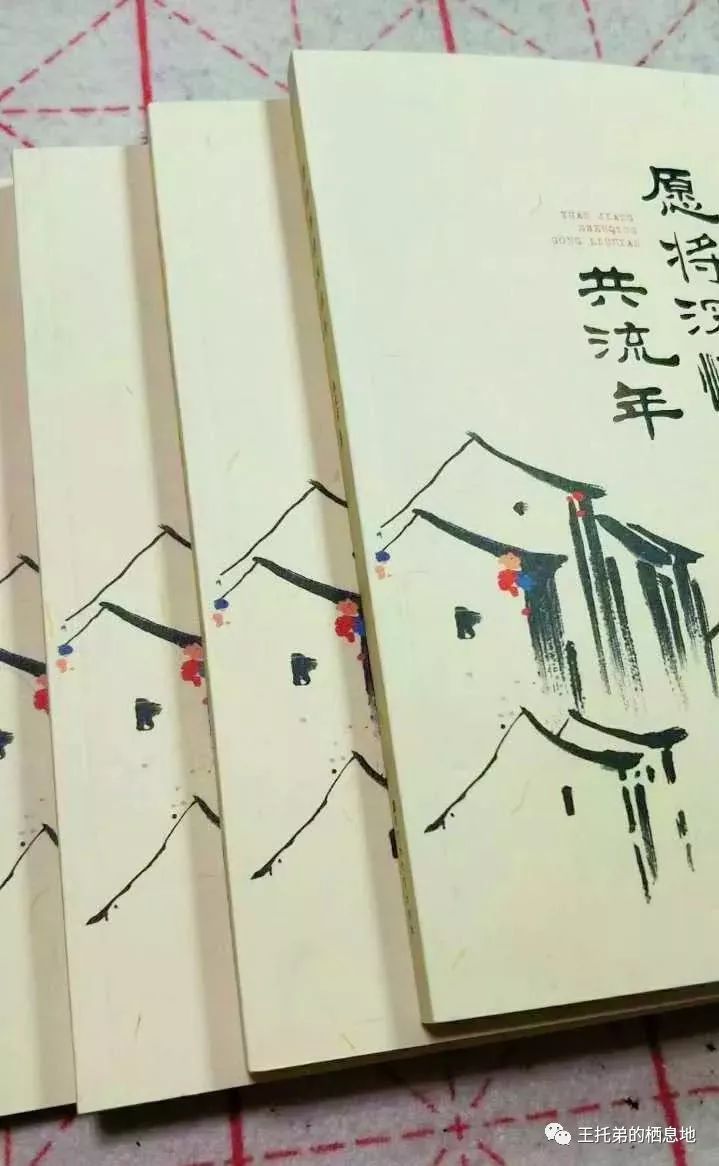 愿将深情
共流年
YUAN JIANG
SHENQING
GONG LIUNIAN
王托弟的栖息地